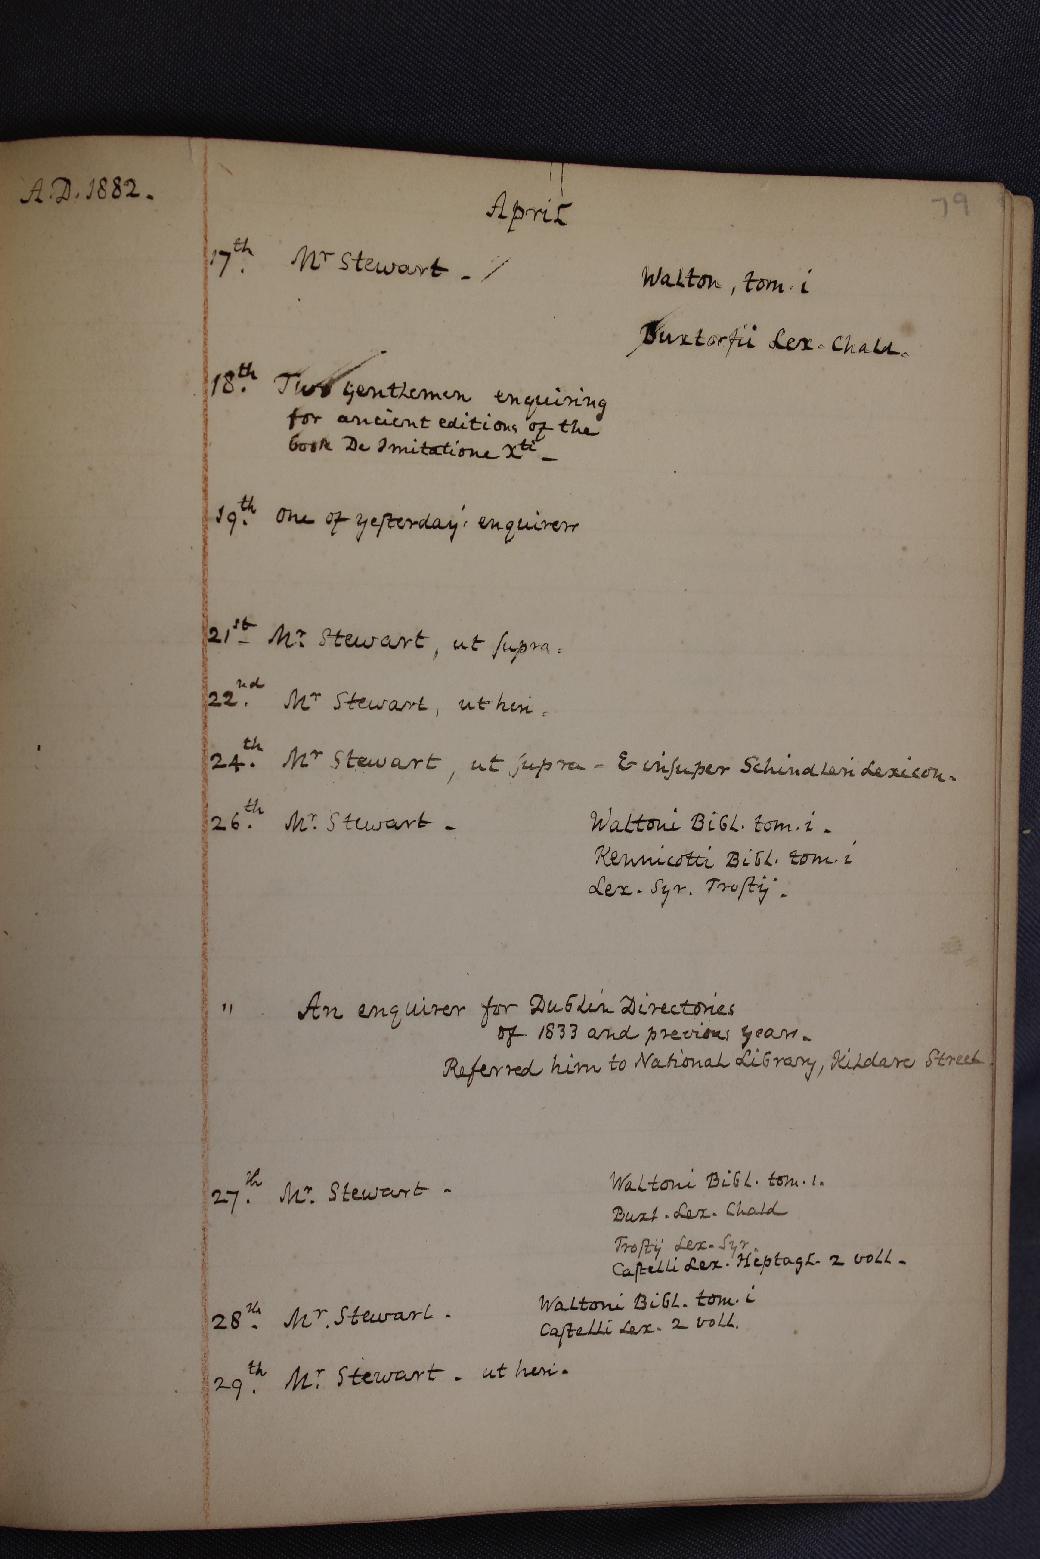 79
A.D. 1882.
April
17th. Mr Stewart - Walton, tom. i
Buxtorfii Lex. Chald.
18th. Two gentlemen enquiring
for ancient editions of the
book De Imitatione Xti -
19th. One of yesterday's enquirers
21st Mr. Stewart, ut supra.
22nd. Mr Stewart, ut heri.
24th. Mr Stewart, ut supra - & insuper Schindleri Lexicon.
26th. Mr. Stewart - Waltoni Bibl. tom. i.
Kennicotti Bibl. tom. i
Lex. Syr. Trostij.
" An enquirer for Dublin Directories
of 1833 and previous years.
Referred him to National Library, Kildare Street
27th. Mr. Stewart - Waltoni Bibl. tom. i.
Buxt. Lex. Chald
Trostij Lex. Syr.
Castelli Lex. Heptagl. 2 voll.
28th. Mr. Stewart. Waltoni Bibl. tom. i
Castelli Lex. 2 voll.
29th. Mr. Stewart. ut heri.